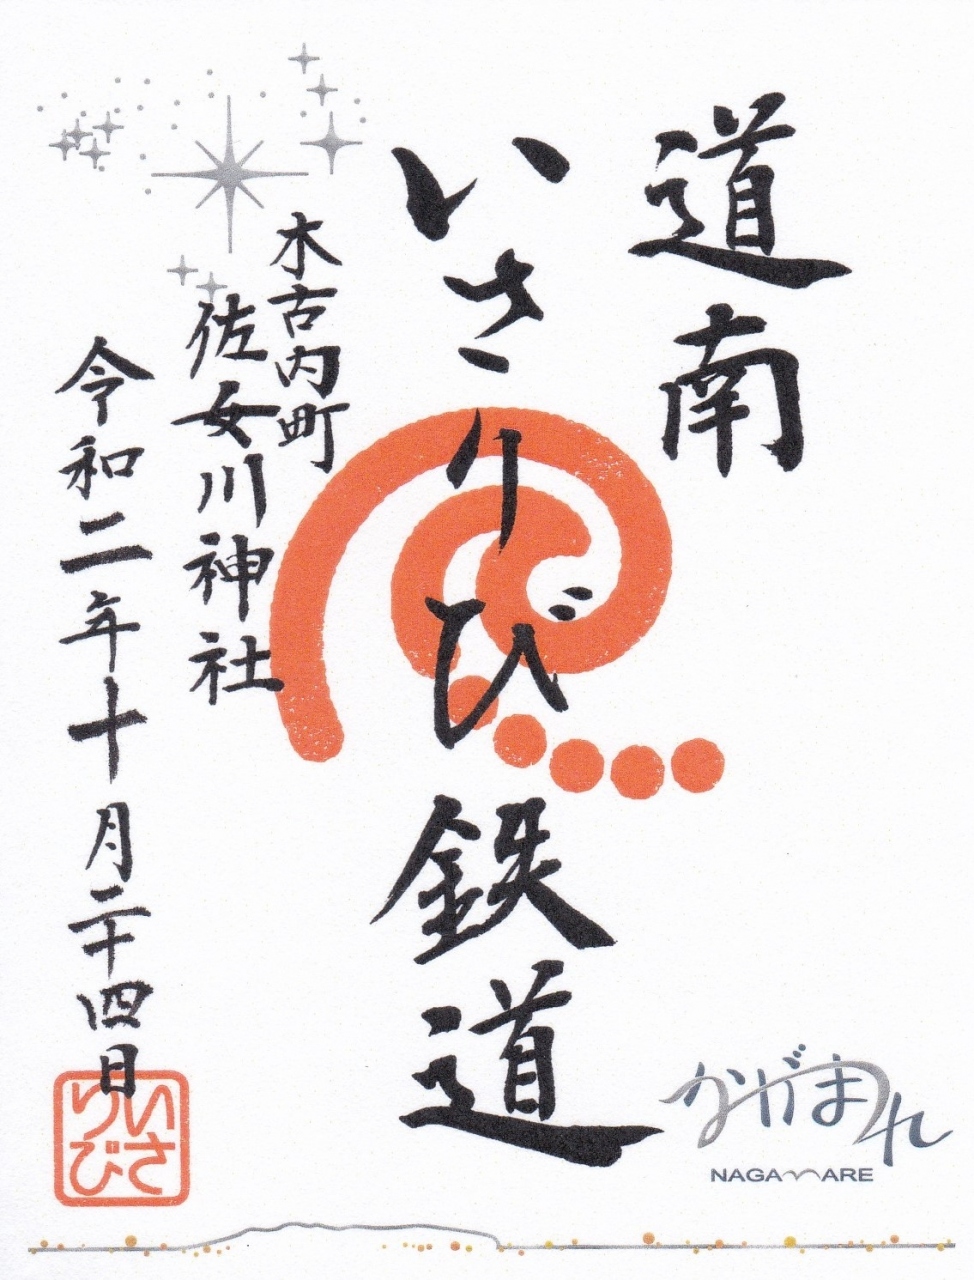 道南
いさりび鉄道
木古内町
佐女川神社
令和二年十月二十四日
いさ
りび
ながまれ
NAGAMARE